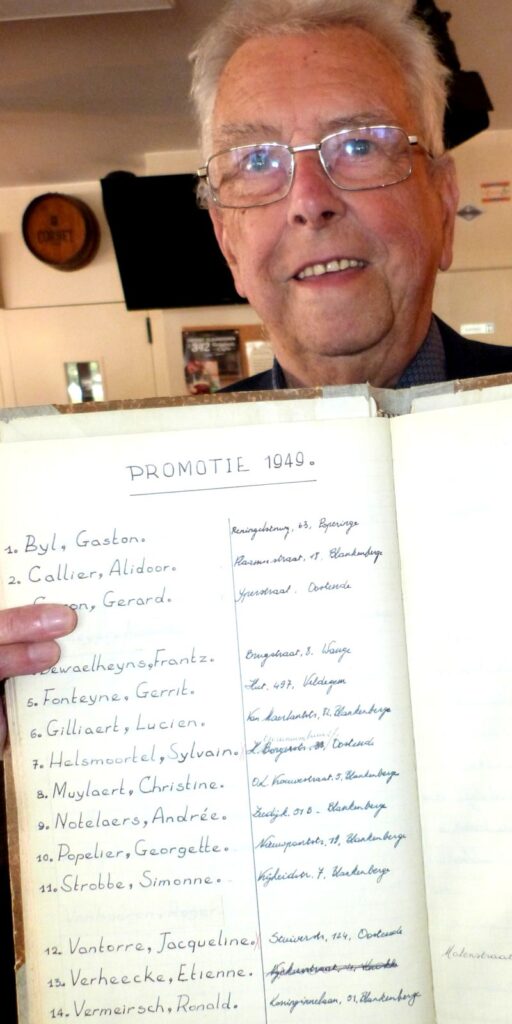 342
PROMOTIE 1949.
1. Byl, Gaston. Reningelstraat, 63, Poperinge
2. Callier, Alidoor. 18, Blankenberge
Gerard. Yperstraat, Oostende
Dewaelheyns, Frantz. Brugstraat, 8.
5. Fonteyne, Gerrit. Hut. 497,
6. Gilliaert, Lucien. Van Maerlantstr, Blankenberge
7. Helsmoortel, Sylvain. Oostende
8. Muylaert, Christine. O.L. Vrouwestraat. 5, Blankenberge
9. Notelaers, Andrée. Zeedijk. Blankenberge
10. Popelier, Georgette. Nieuwpoortstr, 18, Blankenberge
11. Strobbe, Simonne. Vrijheidstr. 7, Blankenberge
12. Vantorre, Jacqueline. Stuiverstr, 124, Oostende
Molenstraat
13. Verheecke, Etienne.
14. Vermeirsch, Ronald. Koninginnelaan, 91, Blankenberge